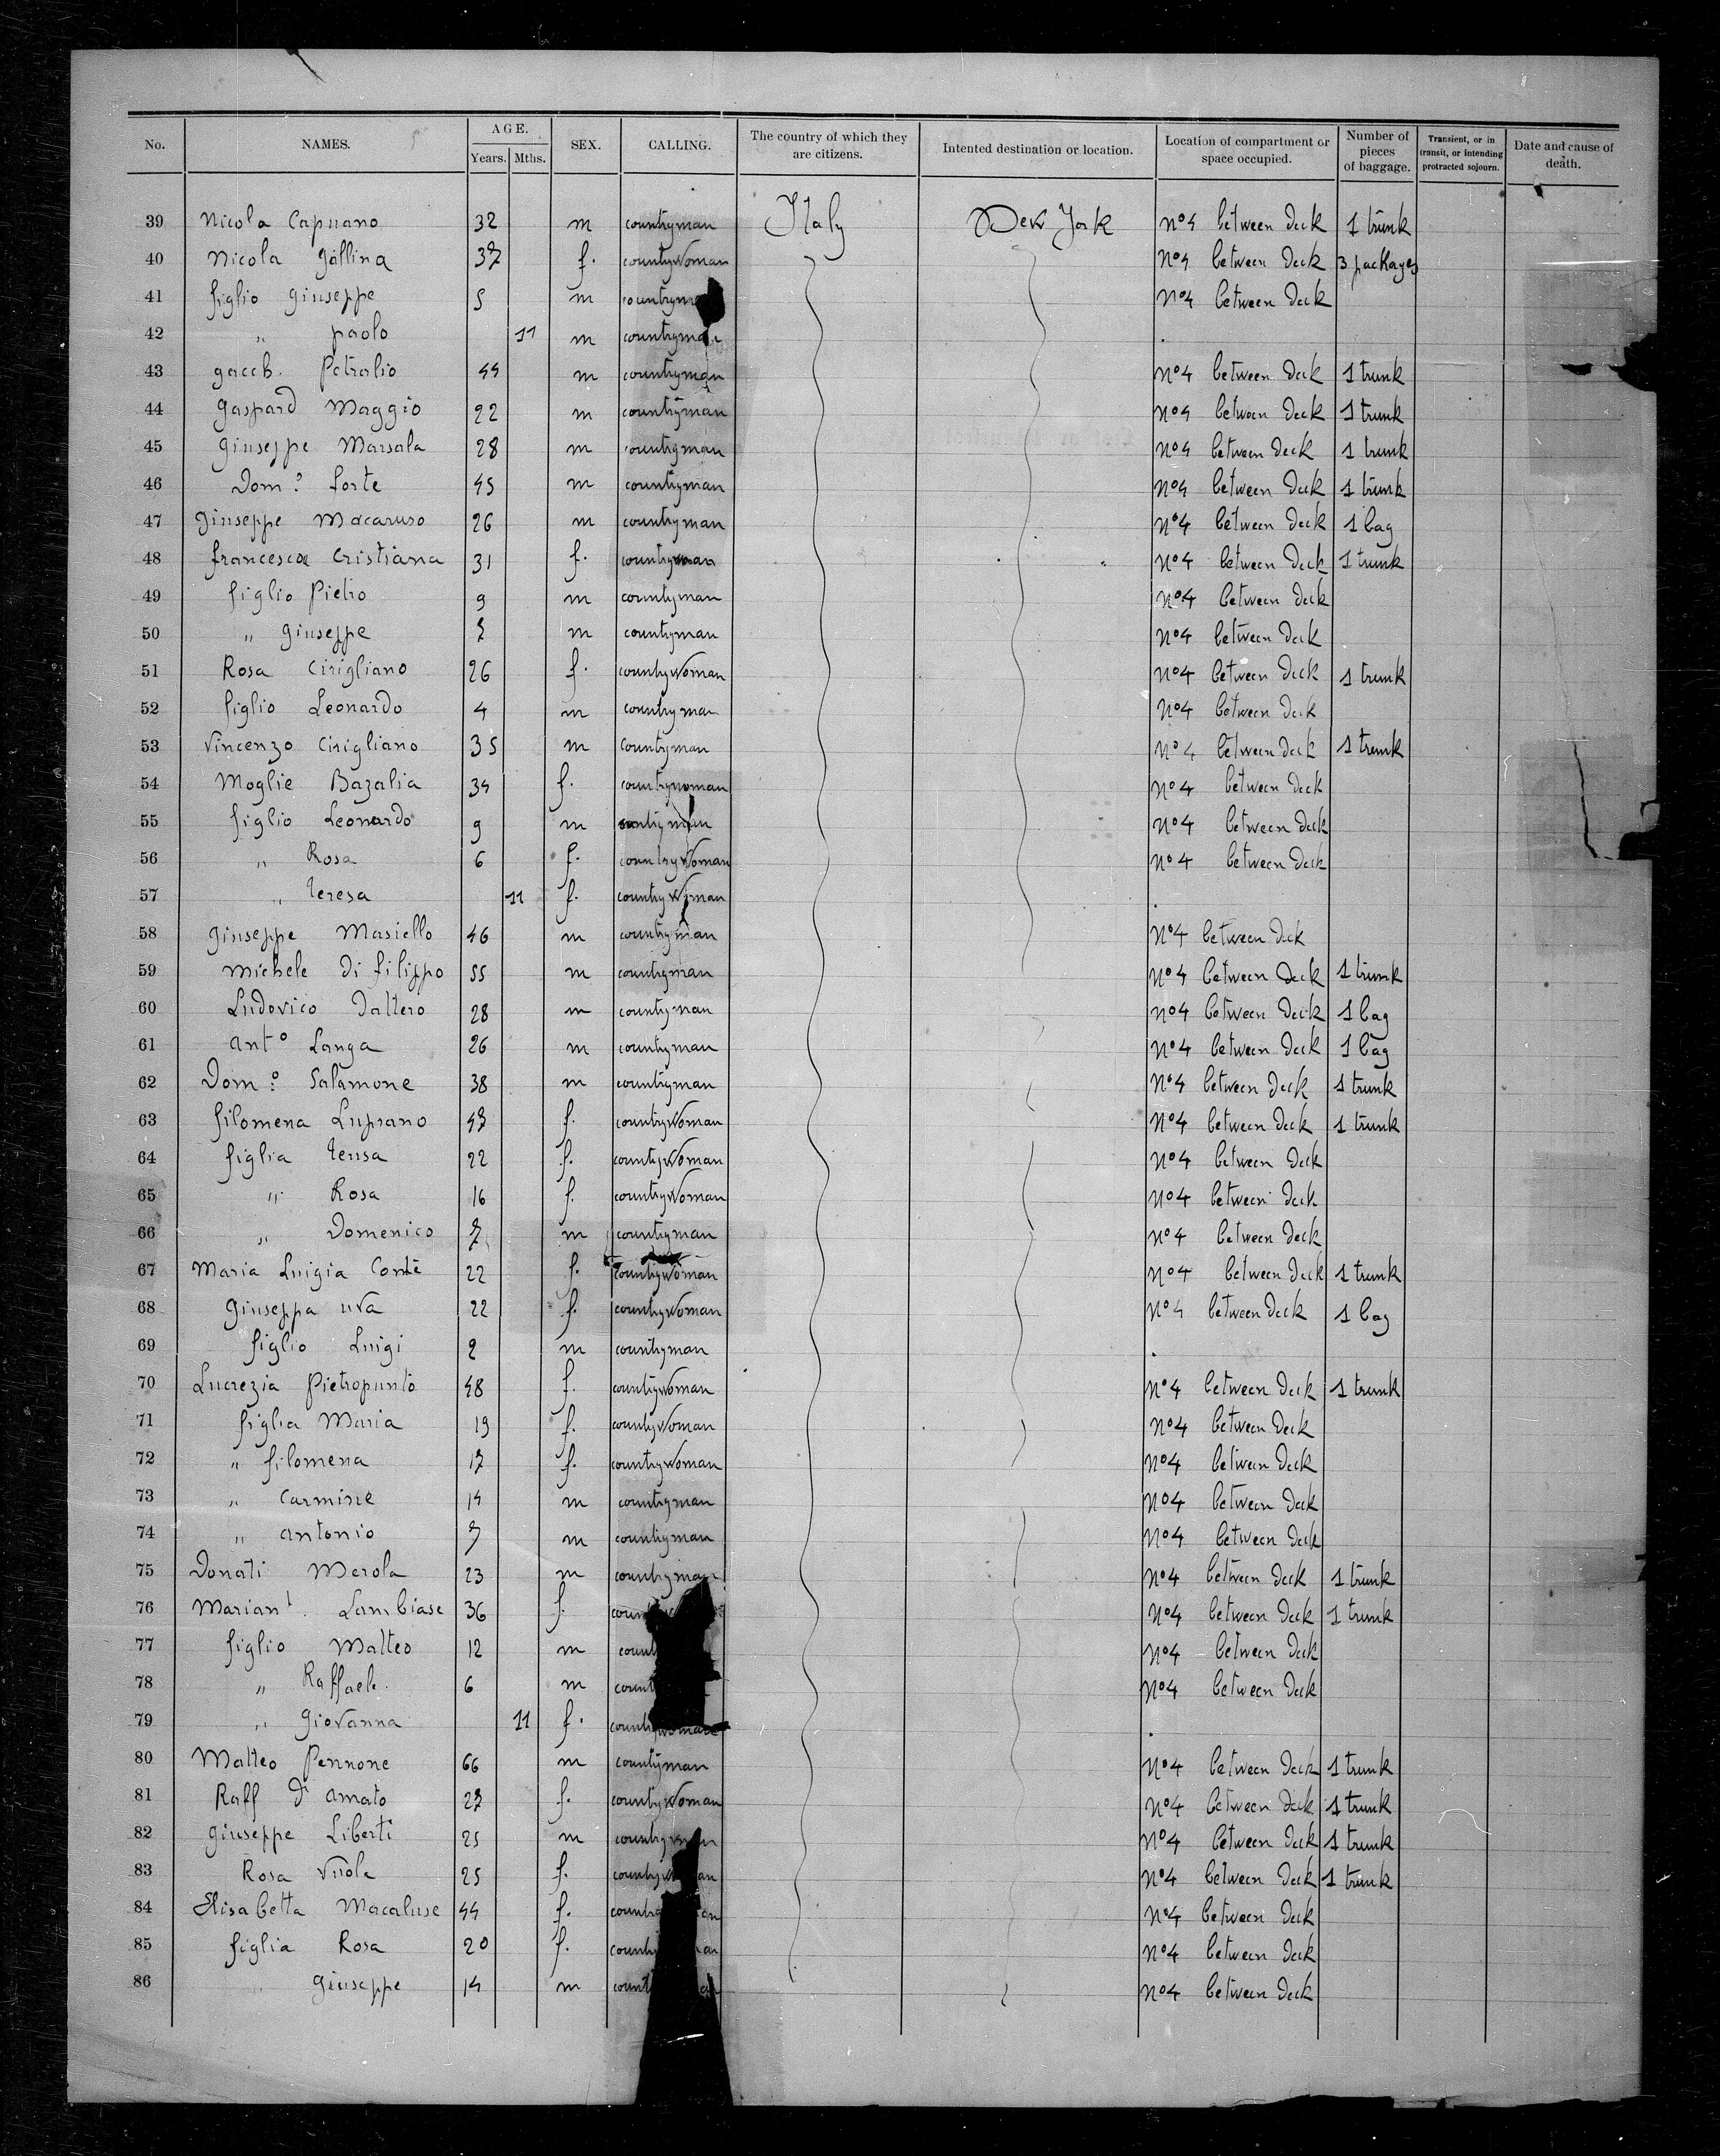 No. NAMES. AGE. Years. Mths. SEX. CALLING. The country of which they are citizens. Intented destination or location. Location of compartment or space occupied. Number of pieces of baggage. Transient, or in transit, or intending protracted sojourn. Date and cause of death.
39 Nicola Capuano 32 m countryman Italy New York No 4 between deck 1 trunk
40 Nicola Gallina 37 f. countrywoman No 4 between deck 3 packages
41 figlio Giuseppe 5 m countryman No 4 between deck
42 „ paolo 11 m countryman
43 giacb. Petralio 44 m countryman No 4 between deck 1 trunk
44 Gaspard Maggio 22 m countryman No 4 between deck 1 trunk
45 Giuseppe Marsala 28 m countryman No 4 between deck 1 trunk
46 Dom.o forte 45 m countryman No 4 between deck 1 trunk
47 Giuseppe Macaruso 26 m countryman No 4 between deck 1 bag
48 francesca Cristiana 31 f. countrywoman No 4 between deck 1 trunk
49 figlio Pietro 9 m countryman No 4 between deck
50 „ Giuseppe 7 m countryman No 4 between deck
51 Rosa Cirigliano 26 f. countrywoman No 4 between deck 1 trunk
52 figlio Leonardo 4 m countryman No 4 between deck
53 Vincenzo Cirigliano 35 m countryman No 4 between deck 1 trunk
54 Moglie Bazalia 34 f. countrywoman No 4 between deck
55 figlio Leonardo 9 m countryman No 4 between deck
56 „ Rosa 6 f. countrywoman No 4 between deck
57 „ Teresa 11 f. countrywoman
58 Giuseppe Masiello 46 m countryman No 4 between deck
59 Michele di filippo 55 m countryman No 4 between deck 1 trunk
60 Ludovico Daltero 28 m countryman No 4 between deck 1 bag
61 Ant.o Langa 26 m countryman No 4 between deck 1 bag
62 Dom.o Salamone 38 m countryman No 4 between deck 1 trunk
63 filomena Luprano 47 f. countrywoman No 4 between deck 1 trunk
64 figlia Terisa 22 f. countrywoman No 4 between deck
65 „ Rosa 16 f. countrywoman No 4 between deck
66 „ Domenico 7 m countryman No 4 between deck
67 Maria Luigia Conte 22 f. countrywoman No 4 between deck 1 trunk
68 Giuseppa uva 22 f. countrywoman No 4 between deck 1 bag
69 figlio Luigi 2 m countryman
70 Lucrezia Pietropunto 48 f. countrywoman No 4 between deck 1 trunk
71 figlia Maria 19 f. countrywoman No 4 between deck
72 „ filomena 17 f. countrywoman No 4 between deck
73 „ Carmine 14 m countryman No 4 between deck
74 „ Antonio 7 m countryman No 4 between deck
75 Donati Merola 23 m countryman No 4 between deck 1 trunk
76 Mariant. Lambiase 36 f. No 4 between deck 1 trunk
77 figlio Matteo 12 m No 4 between deck
78 „ Raffaele 6 m No 4 between deck
79 „ Giovanna 11 f. countrywoman
80 Matteo Pennone 66 m countryman No 4 between deck 1 trunk
81 Raff D'amato 27 f. countrywoman No 4 between deck 1 trunk
82 Giuseppe Liberti 25 m countryman No 4 between deck 1 trunk
83 Rosa 25 f. No 4 between deck 1 trunk
84 Elisabetta Macaluse 44 f. No 4 between deck
85 figlia Rosa 20 f. No 4 between deck
86 „ Giuseppe 14 m No 4 between deck